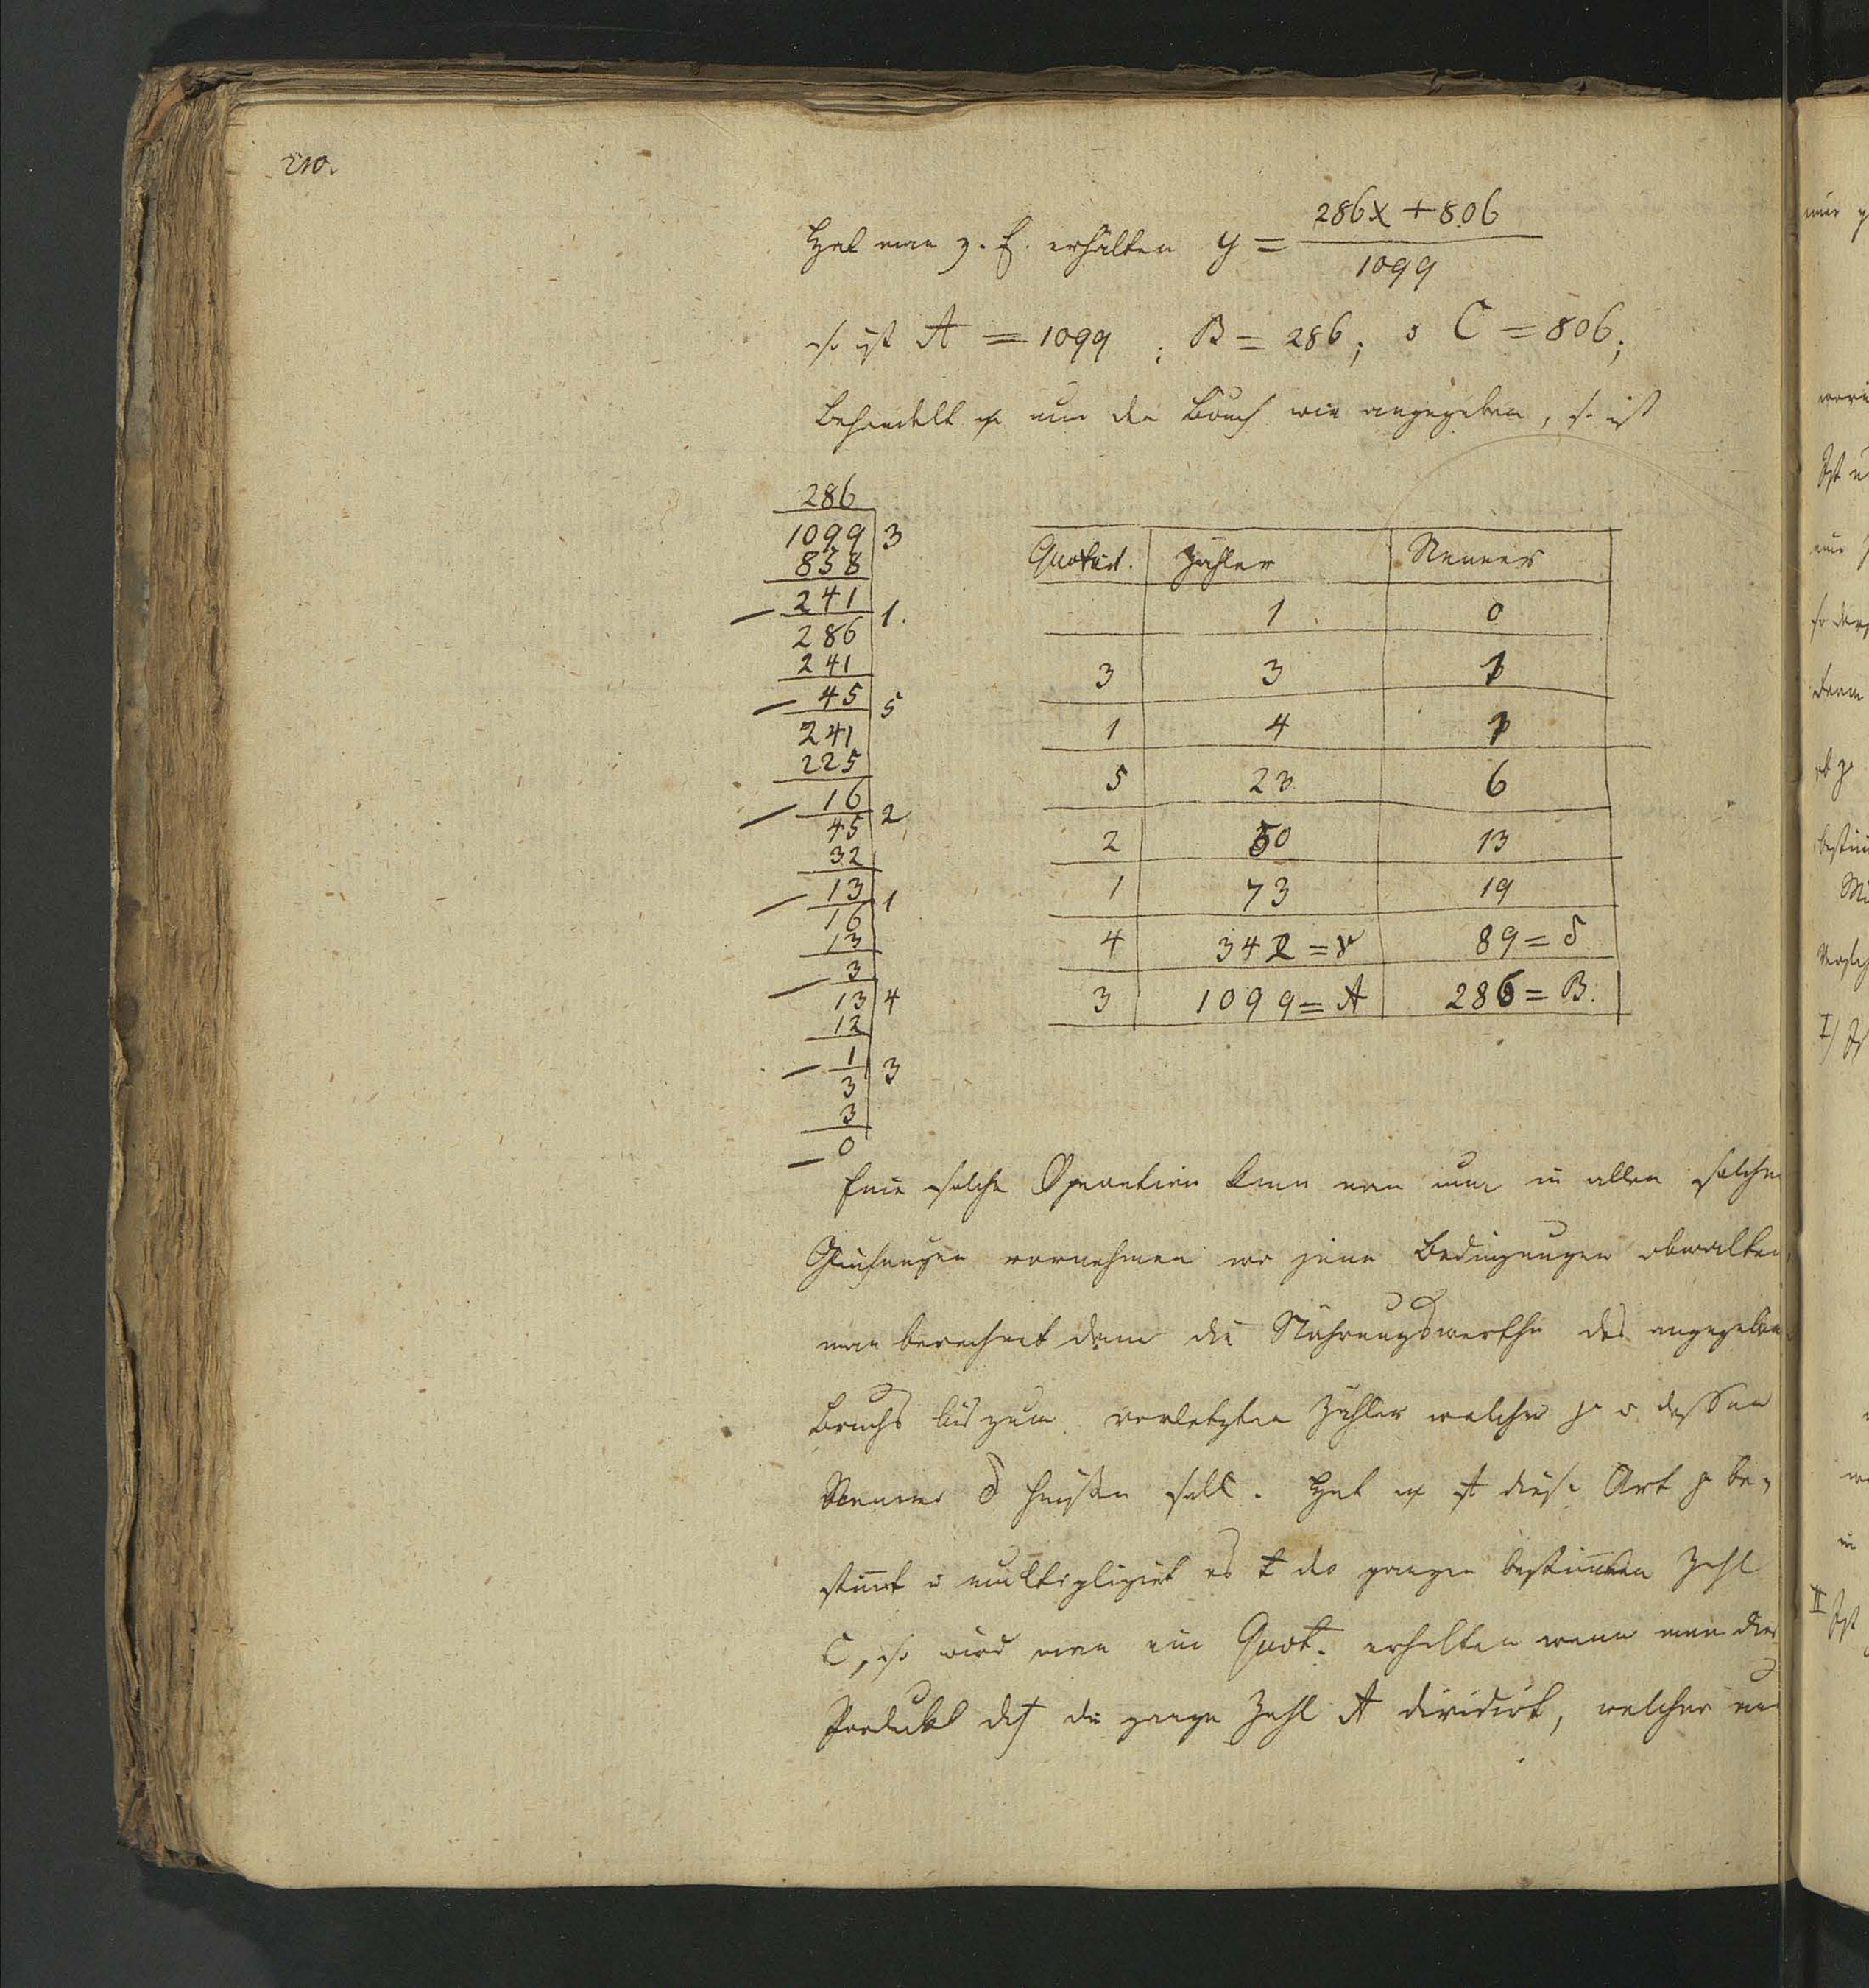 210.
Hat man z. E. erhalten y = 286x + 806 / 1099
so ist A = 1099 ; B = 286 ; C = 806;
Behandelt nun den Bruch wie angegeben, so ist
286
1099 3
858
241 1.
286
241
45 5
241
225
16 2
45
32
13 1
16
13
3
13 4
12
1 3
3
3
0
Quotient. Zähler Nenner
1 0
3 3 1
1 4 1
5 23 6
2 50 13
1 73 19
4 342 = γ 89 = δ
3 1099 = A 286 = B.
Eine solche Operation kann man nun in allen solchen
Gleichungen vornehmen wo jene Bedingungen obwalten
man berechnet dann die Näherungswerthe des angegeben
Bruchs bis zum vorletzten Zähler welcher γ u dessen
Nenner δ heißen soll. Hat diese Art γ be-
stim̅t u multiplizirt es die ganzen bestim̅ten Zahl
C, so wird man ein Quot. erhalten wenn man dies
Produkt die ganze Zahl A dividirt, welcher